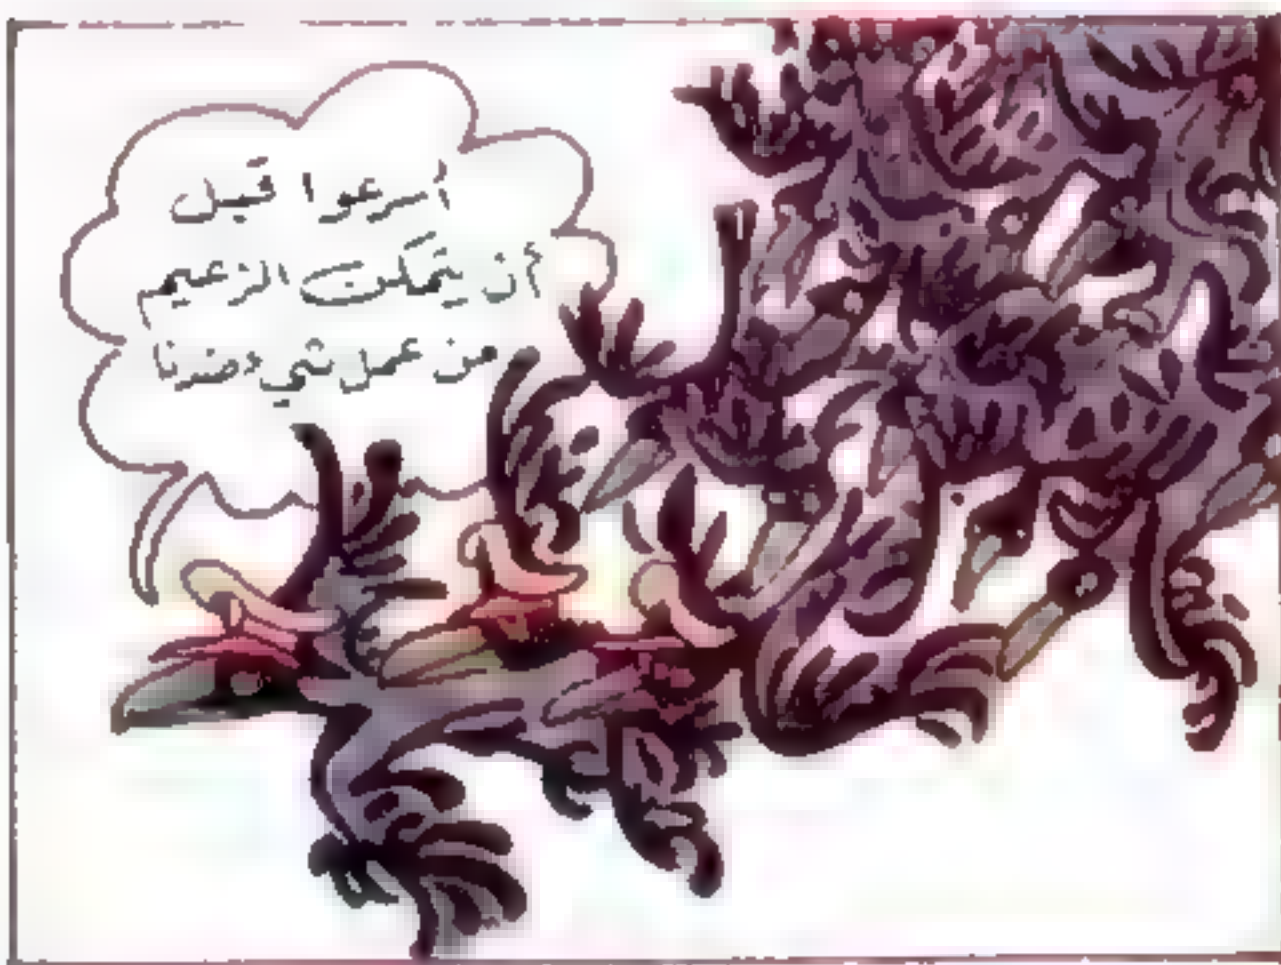 أسرعوا قبل
أن يتمكن الزعيم
من عمل شيء ضدنا